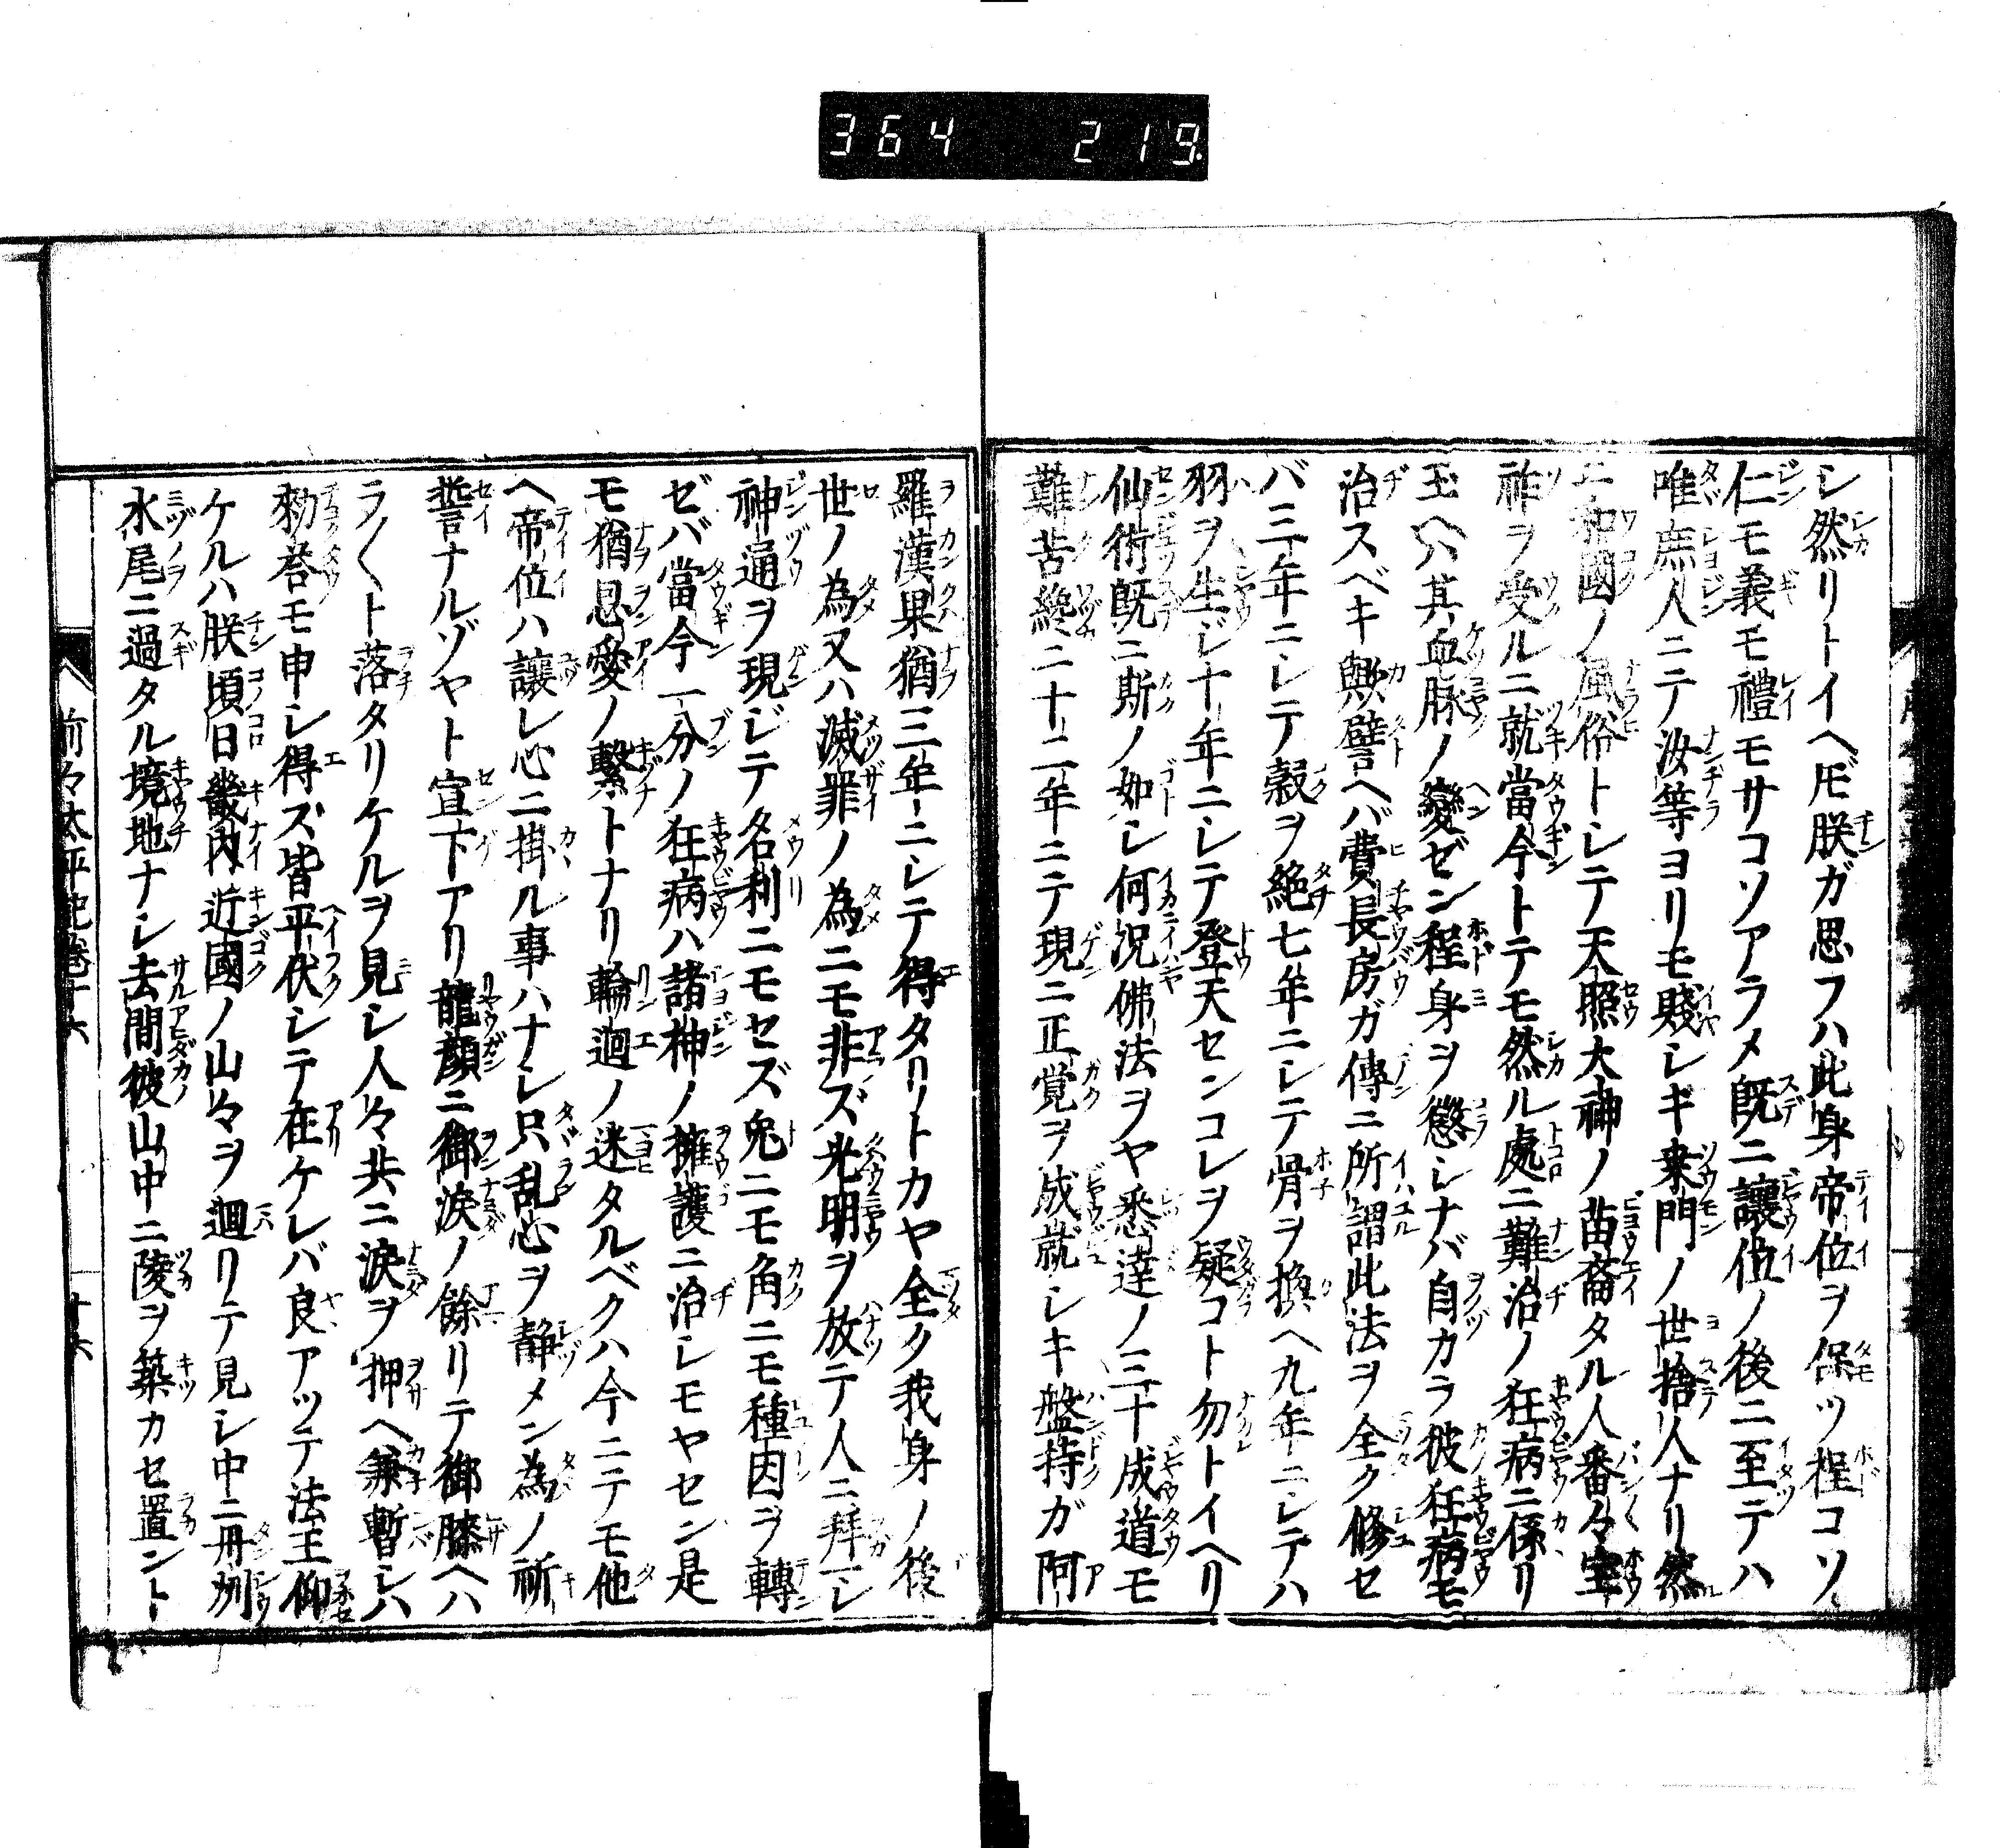 364 219
シ然リトイヘ𪜈朕ガ思フハ此身帝位ヲ保ツ程コソ
仁モ義モ禮モサコソアラメ既ニ讓位ノ後ニ至テハ
唯庶人ニテ汝等ヨリモ賤シキ桒門ノ世捨人ナリ然
ニ和國ノ風俗トシテ天照大神ノ苗裔タル人番々宝
祚ヲ受ルニ就當今トテモ然ル處ニ難治ノ狂病ニ係リ
玉ヘバ其血脉ノ變ゼン程身ヲ懲シナバ自カラ彼狂病モ
治スベキ歟譬ヘバ費長房ガ傳ニ所謂此法ヲ全ク修セ
バ三年ニシテ穀ヲ絶七年ニシテ骨ヲ換ヘ九年ニシテハ
羽ヲ生ジ十年ニシテ登天センコレヲ疑コト勿トイヘリ
仙術既ニ斯ノ如シ何況佛法ヲヤ悉達ノ三十成道モ
難苦纔ニ十二年ニテ現ニ正覚ヲ成就シキ盤持ガ阿
羅漢果猶三年ニシテ得タリトカヤ全ク我身ノ後
世ノ為又ハ滅罪ノ為ニモ非ズ光明ヲ放テ人ニ拜レ
神通ヲ現ジテ名利ニモセズ兔ニモ角ニモ種因ヲ轉
ゼバ當今一分ノ狂病ハ諸神ノ擁護ニ治シモヤセン是
モ猶恩愛ノ繫トナリ輪廻ノ迷タルベクハ今ニテモ他
ヘ帝位ハ讓レ心ニ掛ル事ハナシ只乱心ヲ静メン為ノ祈
誓ナルゾヤト宣下アリ龍顔ニ御淚ノ餘リテ御膝ヘハ
ラ〱ト落タリケルヲ見シ人々共ニ淚ヲ押ヘ兼暫シハ
勅荅モ申シ得ズ皆平伏シテ在ケレバ良アツテ法王仰
ケルハ朕頃日畿内近國ノ山々ヲ廻リテ見シ中ニ丹州
水尾ニ過タル境地ナシ去間彼山中ニ陵ヲ築カセ置ント
前々太平記巻十六
十六